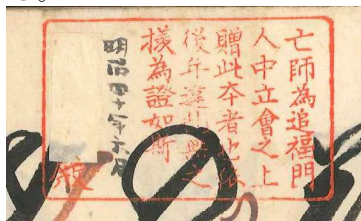 亡師為追福門
人中立會之上
贈此本者也依
後年違乱無之
様為證如斯
明治四十年六月